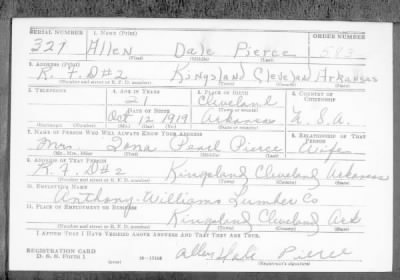 SERIAL NUMBER 1. NAME (Print) ORDER NUMBER
327 Allen Dale Pierce 583
(First) (Middle) (Last)
2. ADDRESS (Print)
R. F. D #2 Kingsland Clevelan Arkansas
(Number and street or R. F. D. number) (Town) (County) (State)
3. TELEPHONE 4. AGE IN YEARS 5. PLACE OF BIRTH 6. COUNTRY OF CITIZENSHIP
21 Cleveland
DATE OF BIRTH (Town or county)
Oct 12 1919 Arkansas U. S. A.
(Exchange) (Number) (Mo.) (Day) (Yr.) (State or country)
7. NAME OF PERSON WHO WILL ALWAYS KNOW YOUR ADDRESS 8. RELATIONSHIP OF THAT PERSON
Mrs. Pearl Pierce Wife
(Mr., Mrs., Miss) (First) (Middle) (Last)
9. ADDRESS OF THAT PERSON
R. F. D #2 Kingsland Cleveland Arkansas
(Number and street or R. F. D. number) (Town) (County) (State)
10. EMPLOYER'S NAME
Anthony-Williams Lumber Co
11. PLACE OF EMPLOYMENT OR BUSINESS
Kingsland Cleveland Ark
(Number and street or R. F. D. number) (Town) (County) (State)
I AFFIRM THAT I HAVE VERIFIED ABOVE ANSWERS AND THAT THEY ARE TRUE.
REGISTRATION CARD
D. S. S. FORM 1 Allen Dale Pierce
(Registrant's signature)